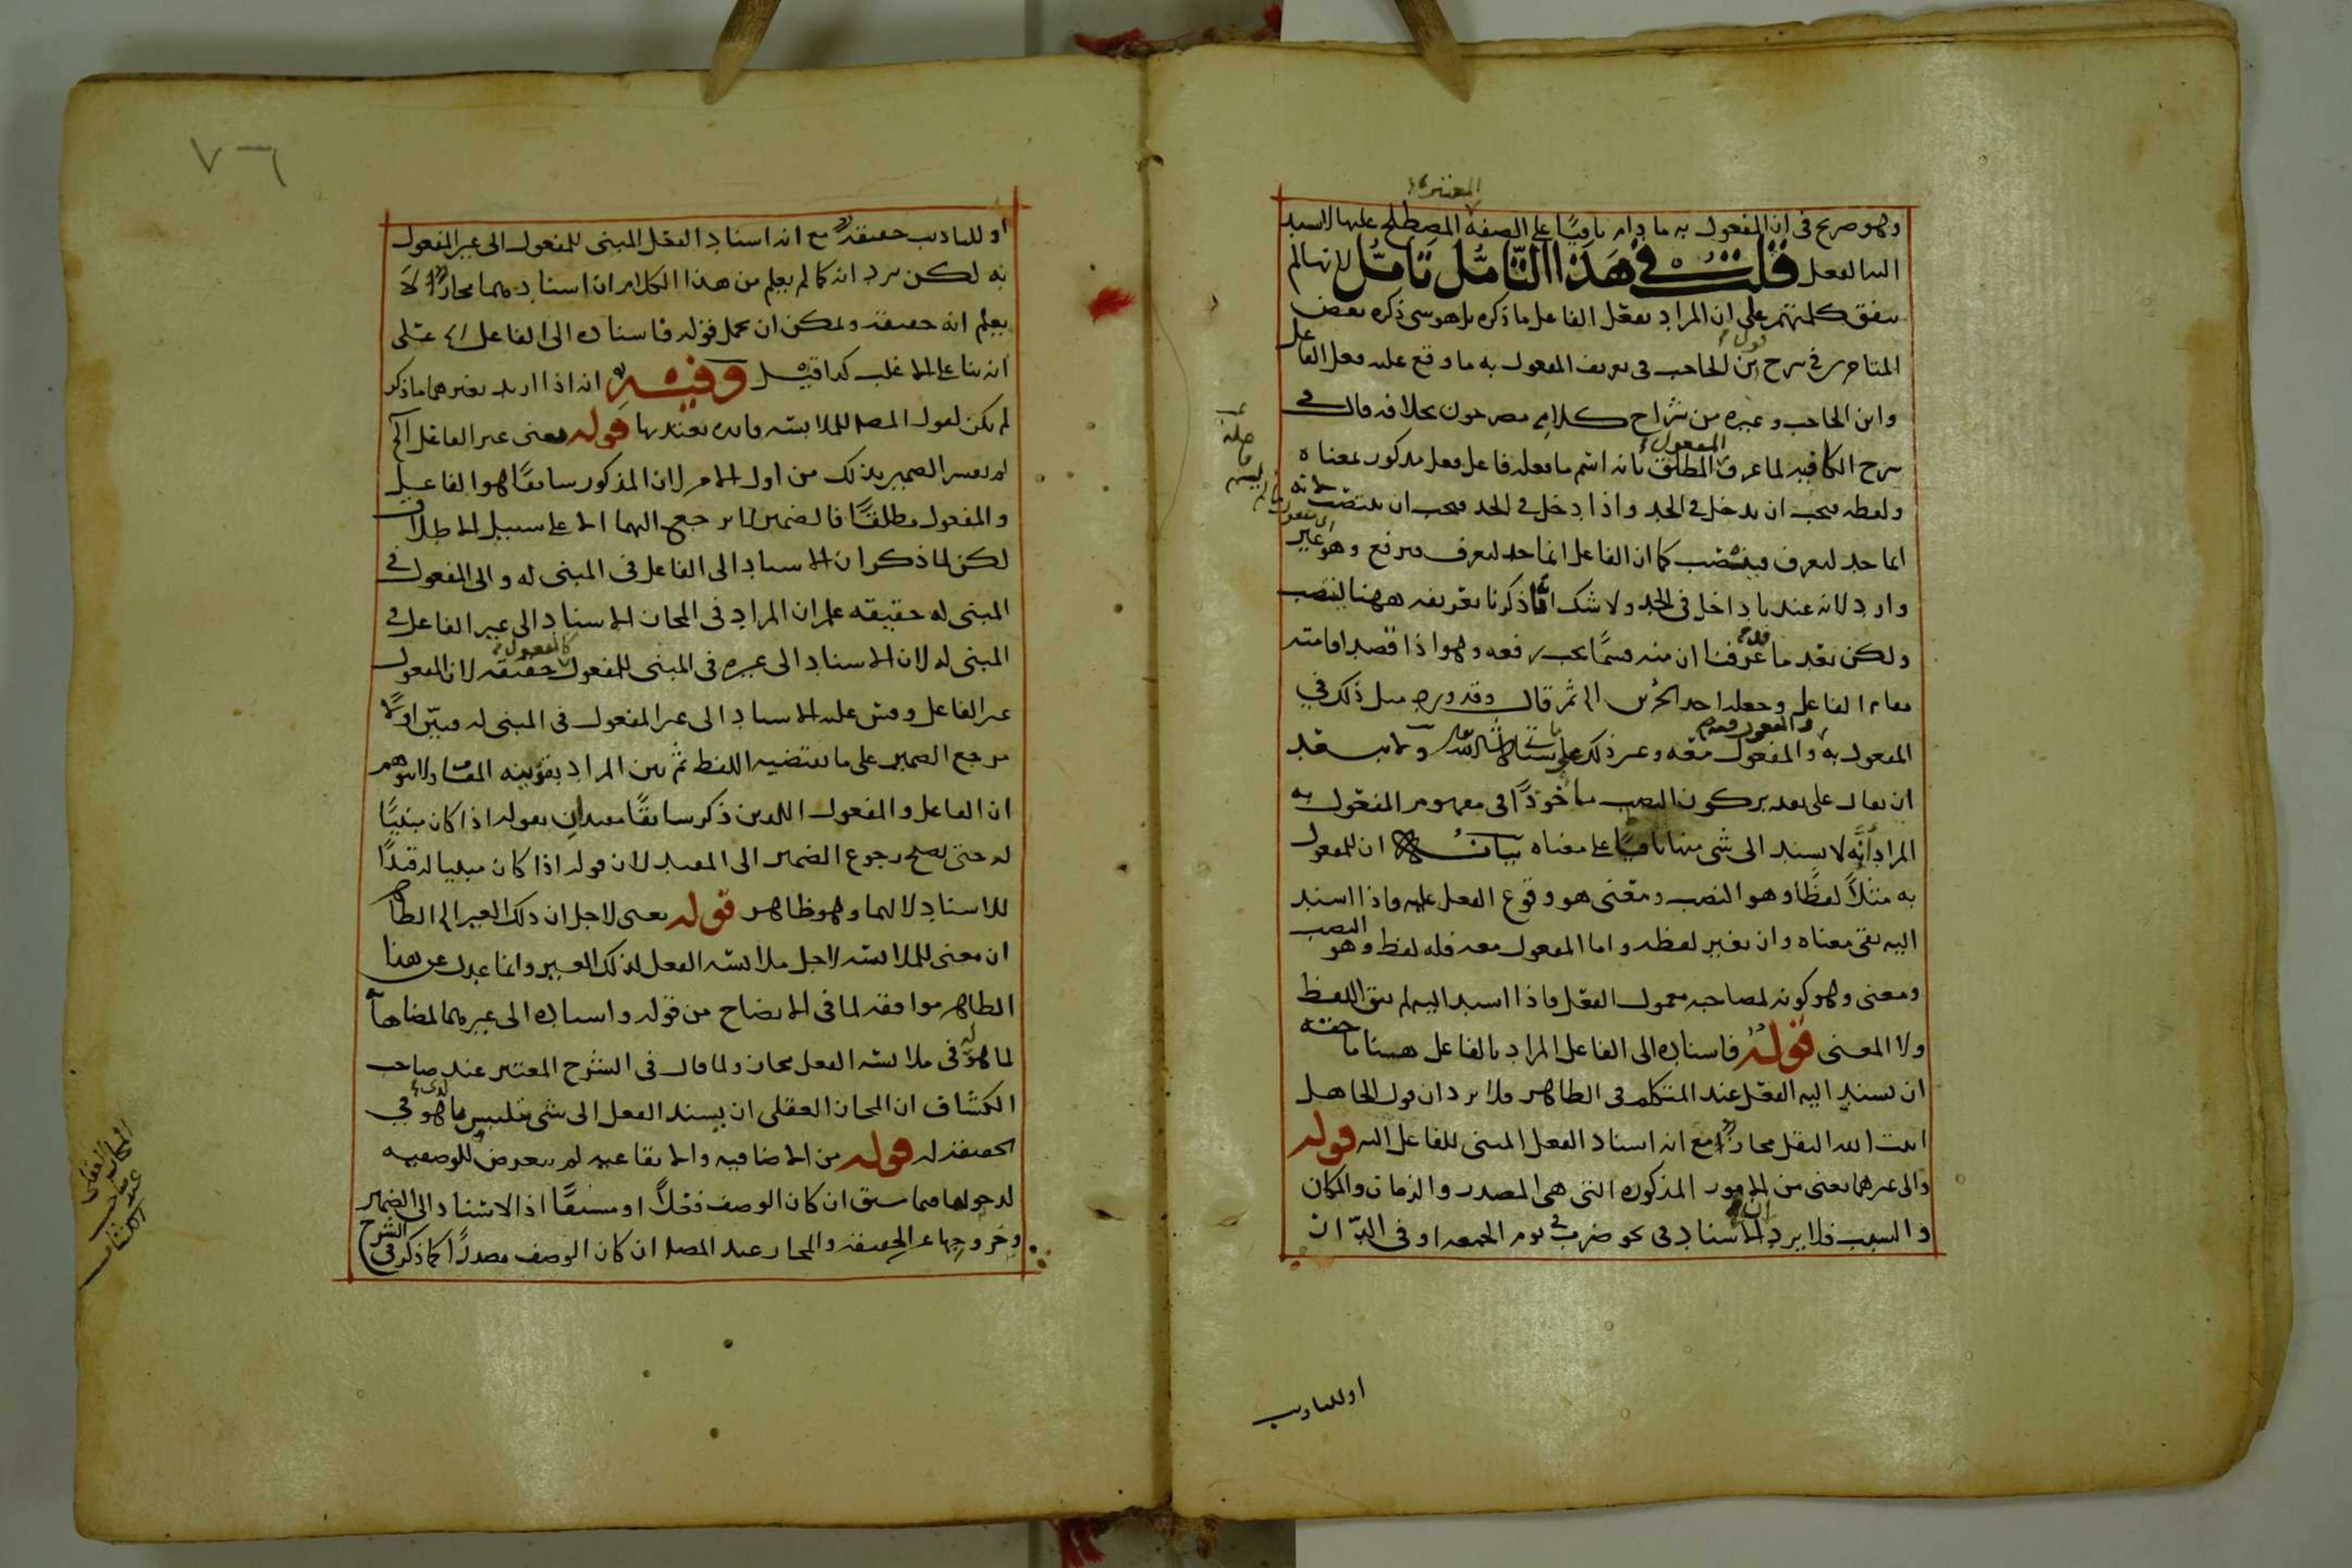 المعتبرة
وهو صريح في ان المفعول به ما دام باقيا على الصفة المصطلح عليها لا يسند
اليه الفعل قلت في هذا التأمل تأمل لانها لم
يتفق كلمتهم على ان المراد بفعل الفاعل ما ذكره بل هو شي ذكره بعض
المتاخرين في شرح قول ابن الحاجب في تعريف المفعول به ما وقع عليه فعل الفاعل
وابن الحاجب وغيره من شراح كلامه مصرحون بخلافه قال في
شرح الكافيه لما عرف المفعول المطلق بانه اسم ما فعله فاعل فعل مذكور بمعناه
ولفظه فيجب ان يدخل في الحد واذا دخل في الحد فيجب ان ينتصب لانه
انما حد ليعرف فينتصب كما ان الفاعل انما حد ليعرف فيرفع وهو غير
وارد لانه عندنا داخل في الحد ولا شك انما ذكرنا تعريفه ههنا لينتصب
ولكن بعد ما قد عرفنا ان منه قسما يجب رفعه وهو اذا قصد اقامته
مقام الفاعل وجعله احد الجزئين الى ثم قال وقد ورد مثل ذلك في
المفعول به والمفعول فيه والمفعول معه وغير ذلك على ستاتي ان شاء الله تعالى ولا يبعد
ان يقال على تقدير كون النصب ماخوذا في مفهوم المفعول به
المراد انه لا يسند الى شي منها باقيا على معناه بيانه ان للمفعول
به مثلا لفظا وهو النصب ومعنى هو وقوع الفعل عليه فاذا اسند
اليه بقي معناه وان تغير لفظه واما المفعول معه فله لفظ وهو النصب
ومعنى وهو كونه لمصاحبة معمول الفعل فاذا اسند اليه لم يبق اللفظ
ولا المعنى قوله فاسناده الى الفاعل المراد بالفاعل ههنا ما حقه
ان يسند اليه الفعل عند المتكلم في الظاهر فلا يرد ان قول الجاهل
انبت الله البقل مجازا مع انه اسناد الفعل المبني للفاعل اليه قوله
والى غيرهما يعني من الامور المذكوره التي هي المصدر والزمان والمكان
والسبب فلا يرد ان الاسناد في نحو ضرب في يوم الجمعه او في الدار
او للتاديب
او للتاديب حقيقة مع انه اسناد الفعل المبني للمفعول الى غير المفعول
به لكن يرد انه كما لم يعلم من هذا الكلام ان اسناد مجازا لا
يعلم انه حقيقه ويمكن ان يحمل قوله فاسناده الى الفاعل على
انه بنا على الاغلب كذا قيل وفيه انه اذا اريد بغيرهما ما ذكر
لم يكن لقول المصـ للملابسه فائده يعتد بها قوله يعني غير الفاعل الخ
لم يفسر الضمير بذلك من اول الامر لان المذكور سابقا هو الفاعل
والمفعول مطلقا فالضمير لا يرجع اليهما الا على سبيل الاطلاق
لكن لما ذكر ان الاسناد الى الفاعل في المبني له والى المفعول في
المبني له حقيقه علم ان المراد في المجاز الاسناد الى غير الفاعل في
المبني له لان الاسناد الى غيره في المبني للمفعول كالمفعول حقيقه لان المفعول
غير الفاعل وقس عليه الاسناد الى غير المفعول في المبني له فبين اولا
مرجع الضمير على ما يقتضيه اللفظ ثم بين المراد بقرينه المقام ولا يتوهم
ان الفاعل والمفعول اللذين ذكر سابقا مقيدان بقوله اذا كان مبنيا
له حتى يصلح رجوع الضمير الى المقيد لان قوله اذا كان مبنيا له قيدا
للاسناد لا لهما وهو ظاهر قوله يعني لاجل ان ذلك الغير الخ الظاهر
ان معنى للملابسه لاجل ملابسه الفعل لذلك الغير وانما عدل عن هذا
الظاهر موافقه لما في الايضاح من قوله واسناده الى غيرهما لمضاهاته
لما هو له في ملابسه الفعل مجاز ولما قال في الشرح المعتبر عند صاحب
الكشاف ان المجاز العقلي ان يسند الفعل الى شي يتلبس بالذي هو في
الحقيقه له قوله من الاضافيه والايقاعيه لم يتعرض للوصفيه
لدخولها فيما سبق ان كان الوصف فعلا او مشتقا اذ الاسناد الى الضمير
وخروجها عن الحقيقه والمجاز عند المصـ ان كان الوصف مصدرا كما ذكر في الشرح
المجاز العقلي
عند صاحب
الكشاف